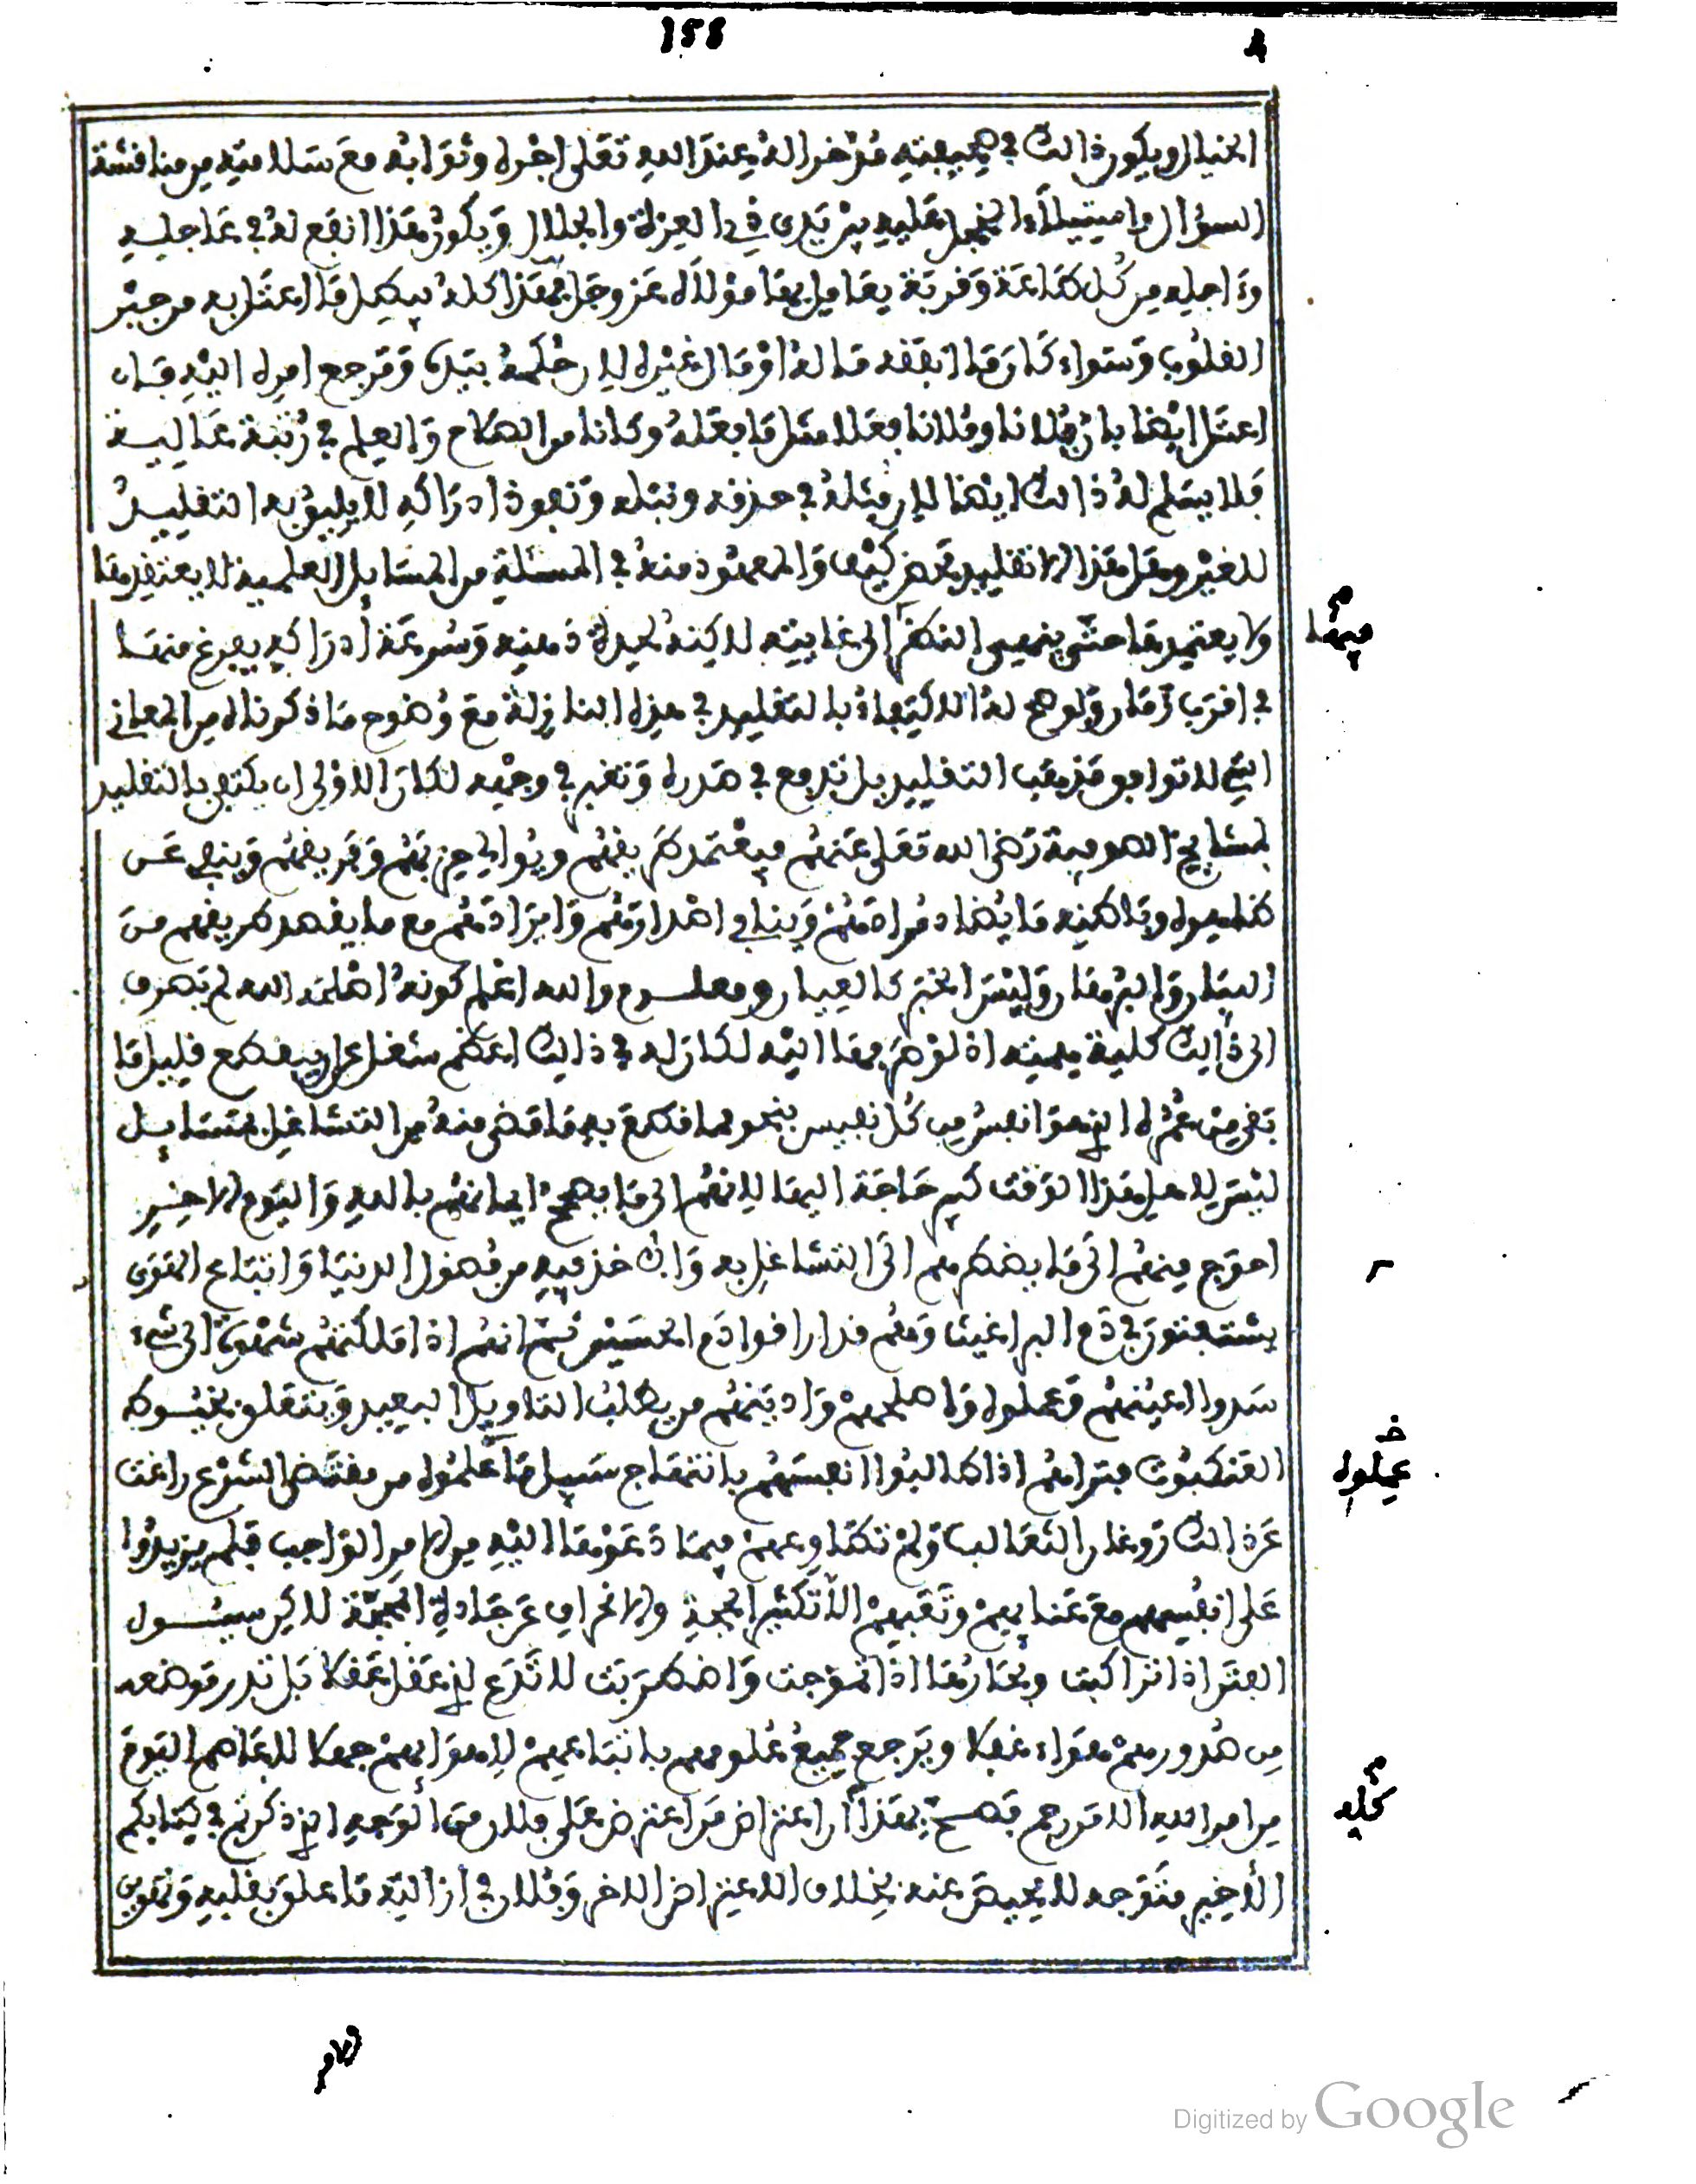 158
الخيار ويكون ذالك في صحيفته مدخرا له عند الله تعلى اجره وثوابه مع سلامته من مناقشة
السؤال واستيلاء الخجل عليه بين يدى ذي العزة والجلال ويكون هذا انفع له في عاجله
وءاجله من كل طاعة وقربة يعامل بها مولاه عز وجل فهذا كله يبطل ما اعتل به من جبر
القلوب وسواء كان ما انفقه ماله او مال غيره لان حكمه بيده ومرجع امره اليه فان
اعتل ايضا بان فلانا وفلانا فعلا مثل ما فعله وكانا من الصلاح والعلم في رتبة عالية
فلا يسلم له ذالك ايضا لان مثله في حذفه ونبله ونفوذ ادراكه لا يليق به التقليد
للغير وهل هذا الا تقليد محض كيف والمعهود منه في المسئلة من المسايل العلمية لا يعتقدها
ولا يعتمدها حتى ينهي النظر الى غايته لاكنه لحدة ذهنه وسرعة ادراكه يفرغ منها
فيها
في اقرب زمان ولو صح له الاكتفاء بالتقليد في هذه النازلة مع وضوح ما ذكرناه من المعاني
التي لا توافق مذهب التقليد بل تدفع في صدره وتغبر في وجهه لكان الاولى ان يكتفي بالتقليد
لمشايخ الصوفية رضي الله تعلى عنهم فيعتمد طريقهم ويوالي حزبهم وفريقهم وينفي عن
ظاهره وباطنه ما يضاد مرادهم وينافي اصدارهم وايرادهم مع ما يقصد طريقهم من
البيان والبرهان وليس الخبر كالعيان ومعلوم والله اعلم كونه اصلحه الله لم يصرف
الى ذالك كلية همته اذ لو صرفها اليه لكان له في ذالك اعظم شغل عن ان يقطع قليل ما
بقي من عمره الذي هو انفس من كل نفيس بنحو ما قطع به ما مضى منه من التشاغل بمسايل
ليس لاهل هذا الوقت كبير حاجة اليها لانهم الى ما يصحح ايمانهم بالله واليوم الاخر
احوج منهم الى ما يضطرهم الى التشاغل به وان خذ فيه من فضول الدنيا واتباع الهوى
يستفتون في دم البراغيث وهم قد اراقوا دم الحسين ثم انهم اذا املكتهم شهوة الى شيء
سدوا اعينهم وعملوه واصلحهم وادينهم من يطلب التاويل البعيد ويتعلق بخيوط
العنكبوت فتراهم اذا طالبوا انفسهم بانتهاج سبيل ما علموه من مقتضى الشرع راغت
عملوه
عن ذالك روغان الثعالب ولم تطاوعهم فيما دعوها اليه من الامر الواجب فلم يزيدوا
على انفسهم مع عنايهم وتعبهم الا تكثير الحجة والانحراف عن جادة المحجة لاكن سيول
الفتن اذا تراكبت وبحارها اذا تموجت واضطربت لا تدع لذي عقل عقلا بل تدر موضعه
من صدورهم هواء غفلا ويرجع جميع علومهم باتباعهم لاهوايهم جهلا لا عاصم اليوم
من امر الله الا من رحم فصح بهذا ان اعتراض من اعترض على فلان من الوجه الذي ذكرتم في كتابكم
كله
الاخير متوجه لا محيص عنه بخلاف الاعتراض الاخر وفلان في ازالته ما علق بقلبه وتفويت